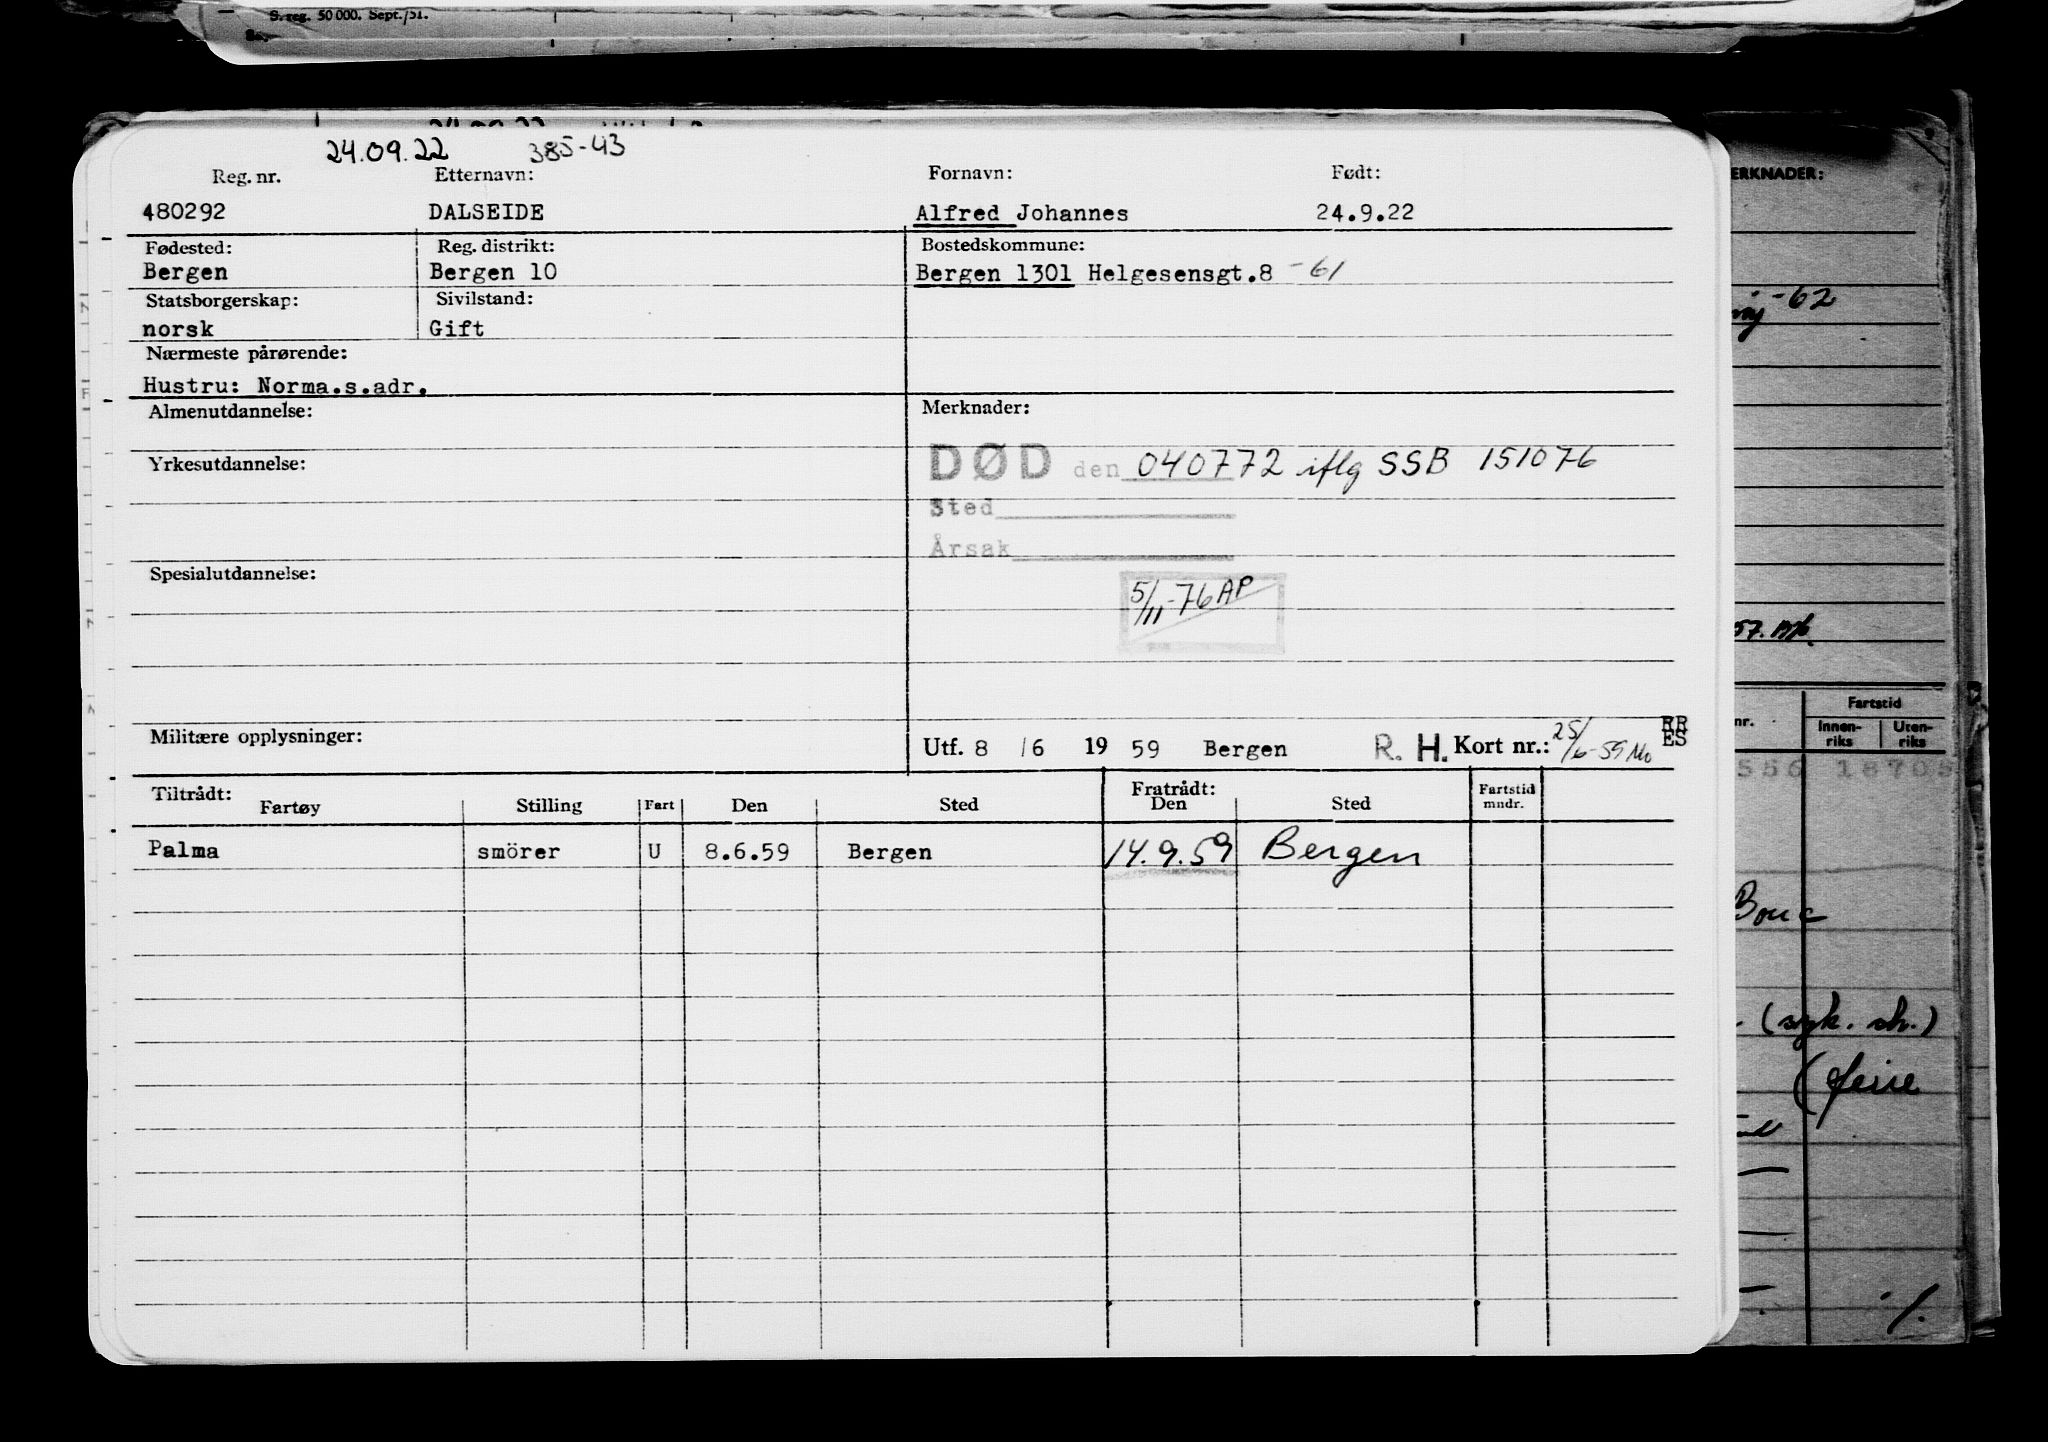 S. reg. 50 000. Sept./51.
24.09.22 385-43
Reg. nr. Etternavn: Fornavn: Født:
480292 DALSEIDE Alfred Johannes 24.9.22
Fødested: Reg. distrikt: Bostedskommune:
Bergen Bergen 10 Bergen 1301 Helgesensgt.8 -61
Statsborgerskap: Sivilstand:
norsk Gift
Nærmeste pårørende:
Hustru: Norma.s.adr.
Almenutdannelse: Merknader:
DØD den 040772 iflg SSB 151076
Yrkesutdannelse:
Sted
Årsak
Spesialutdannelse:
5/11-76 AP
Militære opplysninger:
Utf. 8 /6 19 59 Bergen R. H. Kort nr.: 25/6-59 Mo
RR
ES
Tiltrådt: Fratrådt: Fartstid
Fartøy Stilling Fart Den Sted Den Sted mndr.
Palma smörer U 8.6.59 Bergen 14.9.59 Bergen
ERKNADER:
-62
57.
Fartstid
nr. Innen-riks Uten-riks
556 18705
Bouc
(syk. sh.)
(ferie